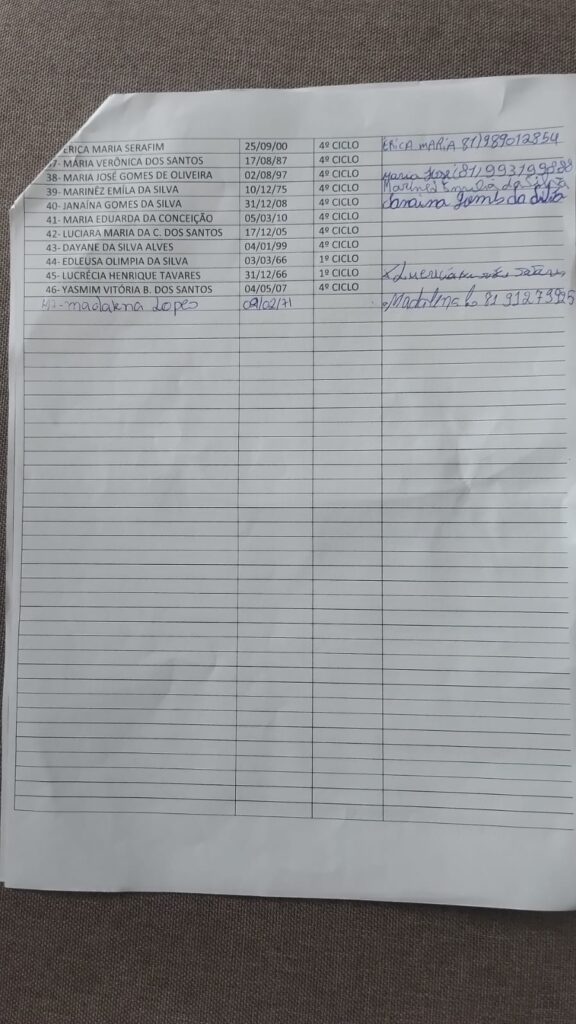 ERICA MARIA SERAFIM 25/09/00 4º CICLO ERICA MARIA 81)989012854
37- MARIA VERÔNICA DOS SANTOS 17/08/87 4º CICLO
38- MARIA JOSÉ GOMES DE OLIVEIRA 02/08/97 4º CICLO Maria José (81)
39- MARINÊZ EMÍLA DA SILVA 10/12/75 4º CICLO Marinês Emilia da Silva
40- JANAÍNA GOMES DA SILVA 31/12/08 4º CICLO Janaina Gomes da Silva
41- MARIA EDUARDA DA CONCEIÇÃO 05/03/10 4º CICLO
42- LUCIARA MARIA DA C. DOS SANTOS 17/12/05 4º CICLO
43- DAYANE DA SILVA ALVES 04/01/99 4º CICLO
44- EDLEUSA OLIMPIA DA SILVA 03/03/66 1º CICLO
45- LUCRÉCIA HENRIQUE TAVARES 31/12/66 1º CICLO
46- YASMIM VITÓRIA B. DOS SANTOS 04/05/07 4º CICLO
47- madalena Lopes /02/71 Madalena Lo 81